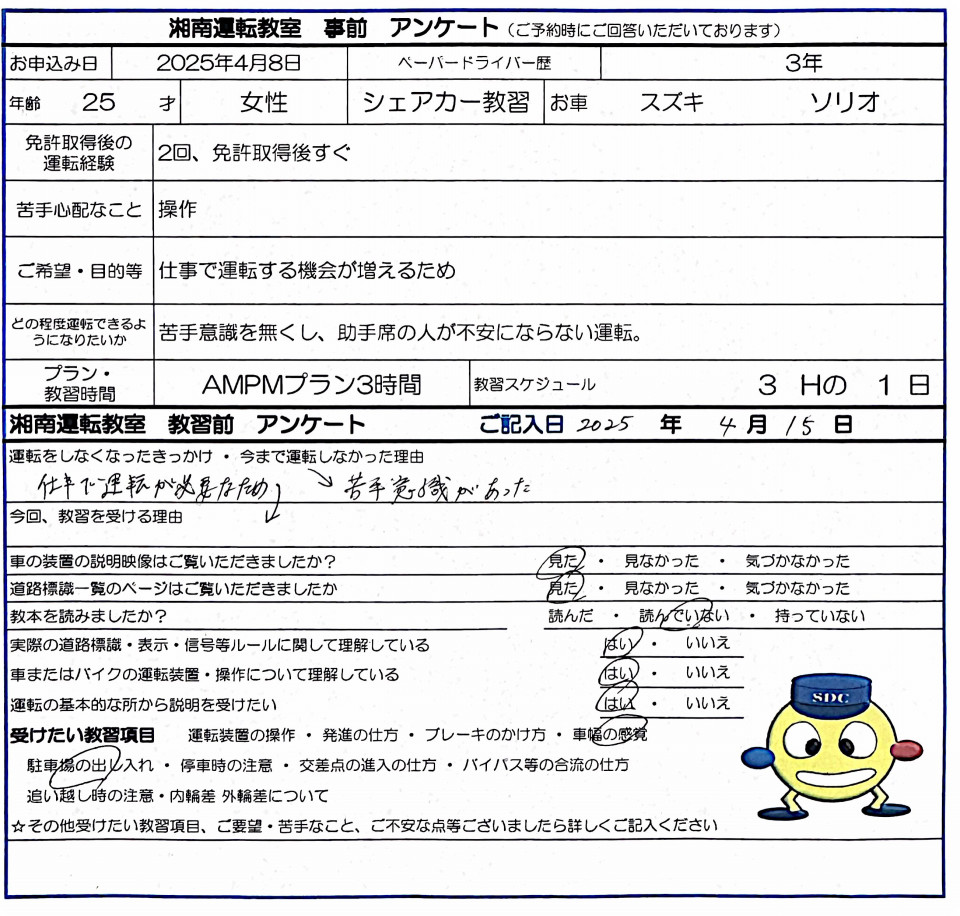 湘南運転教室 事前 アンケート（ご予約時にご回答いただいております）
お申込み日 2025年4月8日 ペーパードライバー歴 3年
年齢 25 才 女性 シェアカー教習 お車 スズキ ソリオ
免許取得後の
運転経験
2回、免許取得後すぐ
苦手心配なこと 操作
ご希望・目的等 仕事で運転する機会が増えるため
どの程度運転できるよ
うになりたいか
苦手意識を無くし、助手席の人が不安にならない運転。
プラン・
教習時間
AMPMプラン3時間 教習スケジュール 3 Hの 1 日
湘南運転教室 教習前 アンケート ご記入日 2025 年 4 月 15 日
運転をしなくなったきっかけ・今まで運転しなかった理由
仕事で運転が必要なため 苦手意識があった
今回、教習を受ける理由
車の装置の説明映像はご覧いただきましたか？ 見た ・ 見なかった ・ 気づかなかった
道路標識一覧のページはご覧いただきましたか 見た ・ 見なかった ・ 気づかなかった
教本を読みましたか？ 読んだ ・ 読んでいない ・ 持っていない
実際の道路標識・表示・信号等ルールに関して理解している はい ・ いいえ
車またはバイクの運転装置・操作について理解している はい ・ いいえ
運転の基本的な所から説明を受けたい はい ・ いいえ
受けたい教習項目 運転装置の操作 ・ 発進の仕方 ・ ブレーキのかけ方 ・ 車幅の感覚
駐車場の出し入れ ・ 停車時の注意 ・ 交差点の進入の仕方 ・ バイパス等の合流の仕方
追い越し時の注意・内輪差 外輪差について
☆その他受けたい教習項目、ご要望・苦手なこと、ご不安な点等ございましたら詳しくご記入ください
SDC